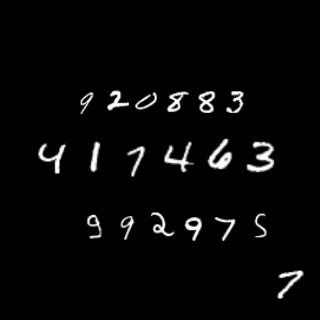 920883
417463
992975
7